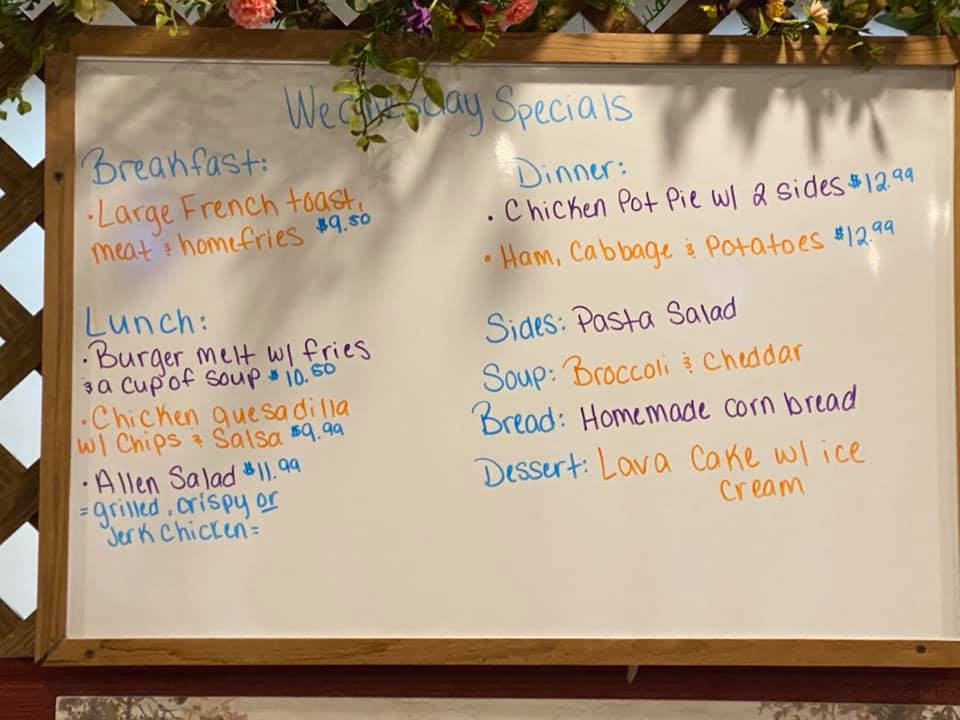 Wednesday Specials
Breakfast:
• Large French toast,
meat & homefries $9.50
Lunch:
• Burger melt w/ fries
& a cup of soup $10.50
• Chicken quesadilla
w/ Chips & Salsa $9.99
• Allen Salad $11.99
= grilled, crispy or
Jerk Chicken =
Dinner:
• Chicken Pot Pie w/ 2 sides $12.99
• Ham, Cabbage & Potatoes $12.99
Sides: Pasta Salad
Soup: Broccoli & Cheddar
Bread: Homemade corn bread
Dessert: Lava Cake w/ ice
cream